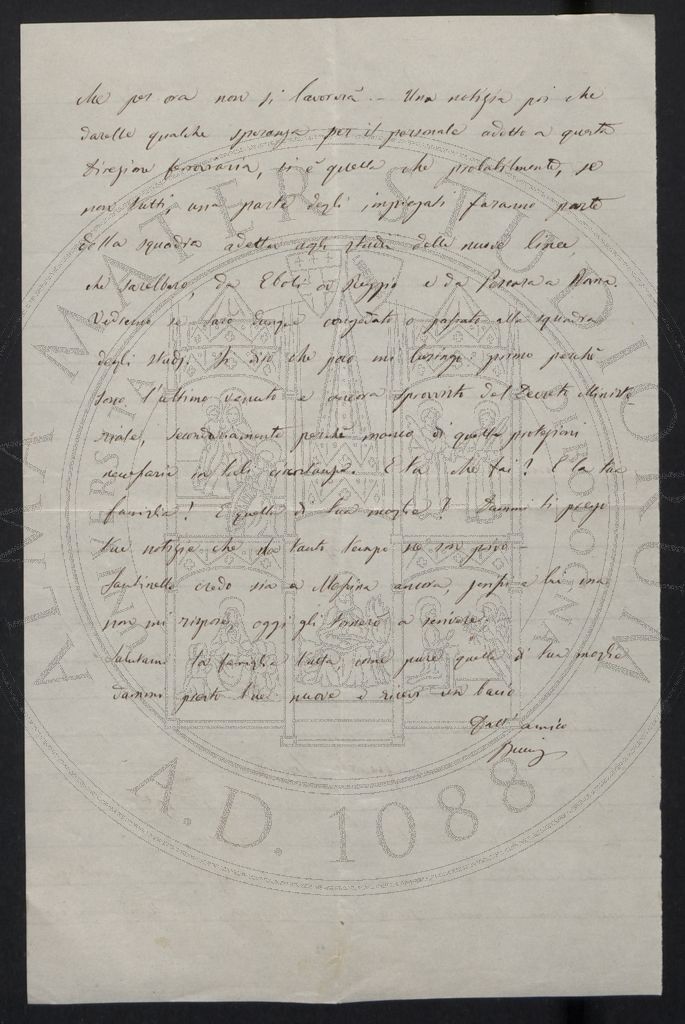 che per ora non si lavorerà. – Una notizia poi che
darebbe qualche speranza per il personale addetto a questa
Direzione ferroviaria, si è quella che probabilmente, se
non tutti, una parte degli impiegati faranno parte
della squadra addetta agli studi delle nuove linee,
che sarebbero, da Eboli a Reggio e da Pescara a Roma.
Vedremo se sarò dunque congedato o passato alla squadra
degli studj. Ti dirò che poco mi lusingo primo perchè
sono l'ultimo venuto e ancora sprovvisto del Decreto Ministe-
riale, secondariamente perchè manco di quelle protezioni
necessarie in tali circostanze. E tu che fai? E la tua
famiglia? E quella di tua moglie? Dammi ti prego
tue notizie che da tanto tempo ne son privo –
Santinello credo sia a Messina ancora, scrissi a lui ma
non mi rispose, oggi gli tornerò a scrivere. –
Salutami la famiglia tutta come pure quella di tua moglie
dammi presto tue nuove e ricevi un bacio
Dall'amico
ALMA MATER STUDIORUM
A.D. 1088